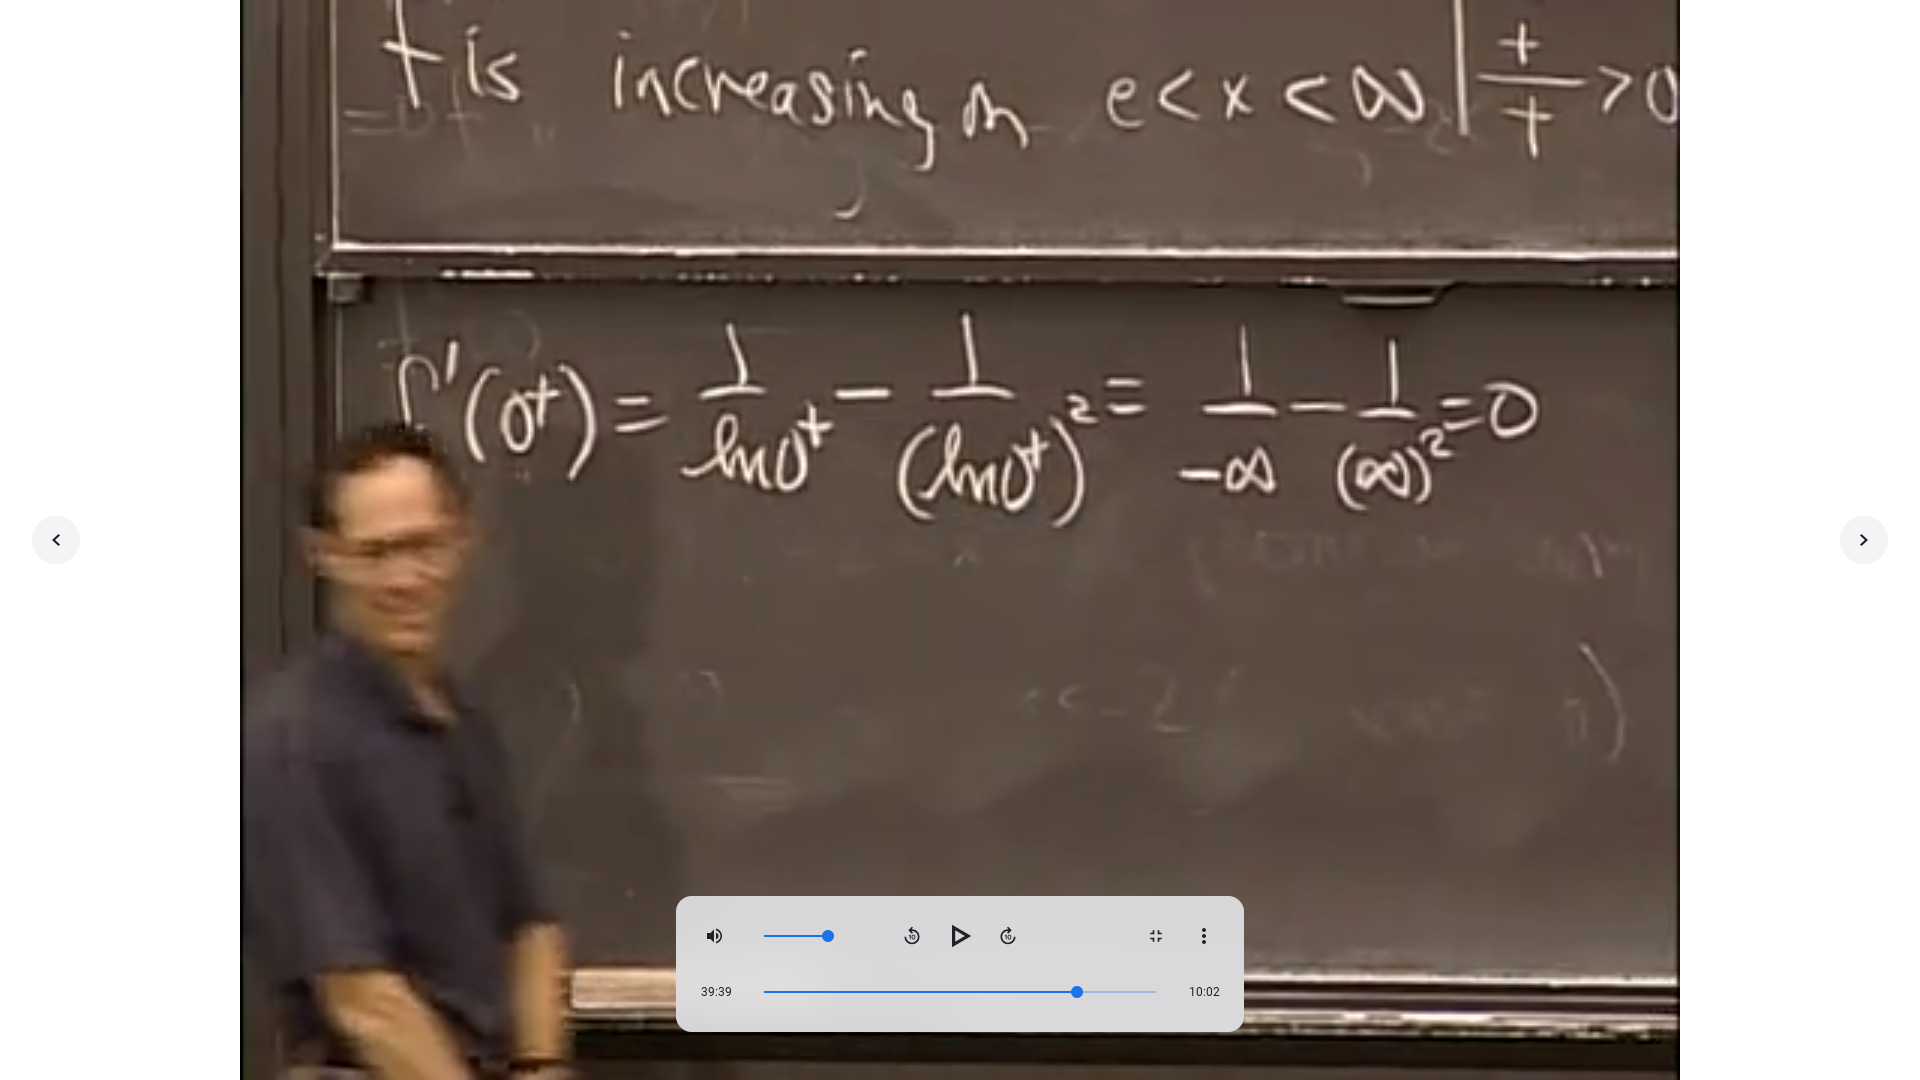 f is increasing on e < x < ∞ | + / + > 0
f'(0⁺) = 1/ln0⁺ − 1/(ln0⁺)² = 1/−∞ − 1/(∞)² = 0
39:39 10:02